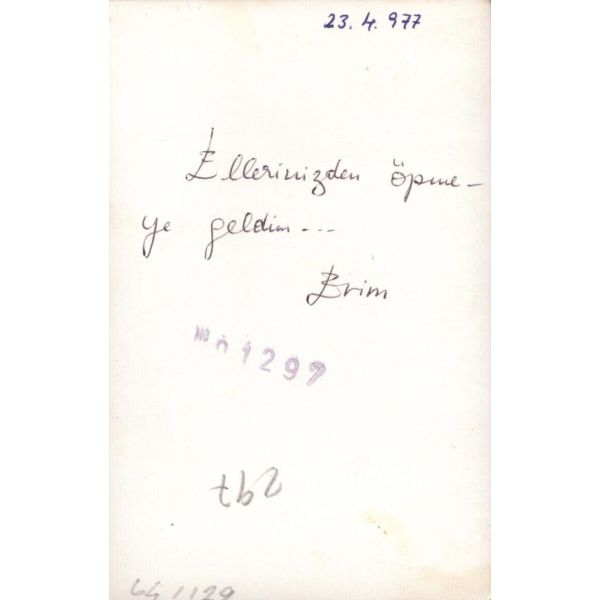 23. 4. 977
Ellerinizden öpme-
ye geldim...
Evrim
1297
297
64 1129